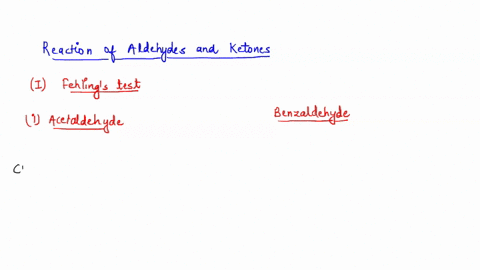 Reaction of Aldehydes and Ketones
(I) Fehling's test
(i) Acetaldehyde
Benzaldehyde
C